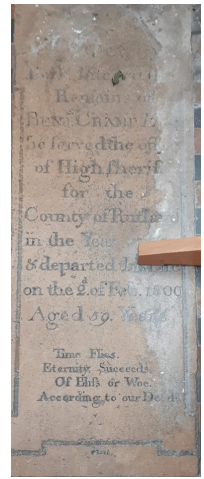 Remains of
BENJ. CRAMP
he served the
of High Sherif
for the
County of Rutland
in the Year
& departed this
on the 2d. of Feb. 1800
Aged 59. Years
Time Flies.
Eternity Succeeds,
Of Bliss or Woe.
According to our Deeds